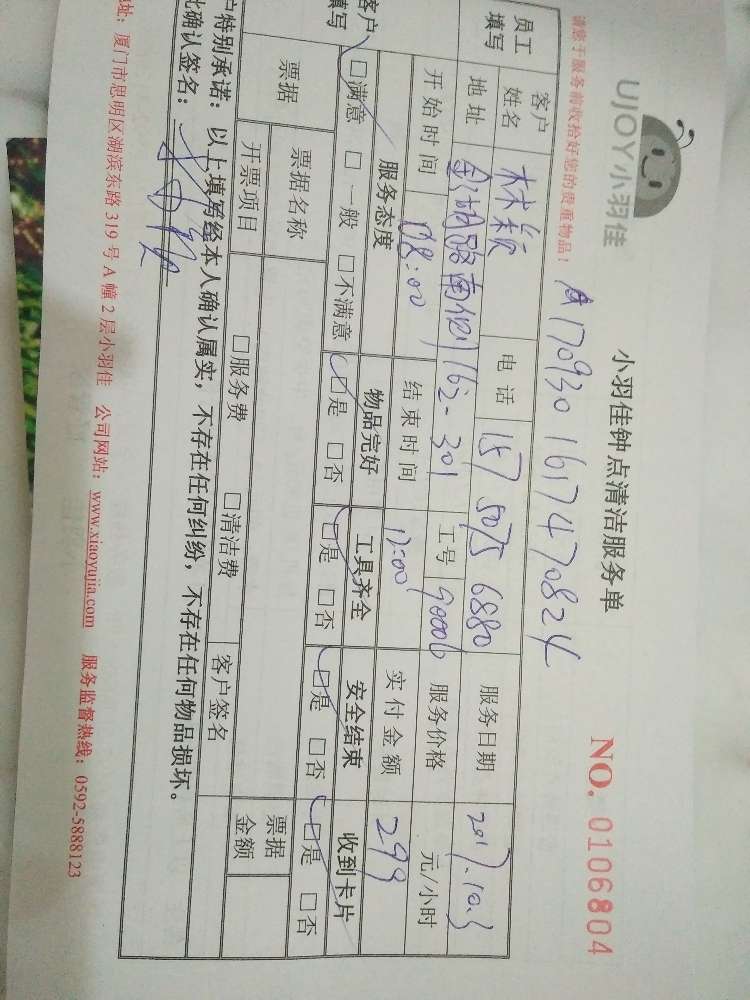 UJOY小羽佳
小羽佳钟点清洁服务单
NO. 0106804
请您于服务前收拾好您的贵重物品!
A170930161747 0824
员工填写
客户姓名 林颖 电话 157 5075 6880 服务日期 2017.10.3
地址 金湖路南侧162-301 工号 90006 服务价格 元/小时
开始时间 08:00 结束时间 12:00 实付金额 299
客户填写
服务态度 物品完好 工具齐全 安全结束 收到卡片
□满意 □一般 □不满意 □是 □否 □是 □否 □是 □否 □是 □否
票据 票据名称 票据金额
开票项目 □服务费 □清洁费 客户签名
户特别承诺:以上填写经本人确认属实,不存在任何纠纷,不存在任何物品损坏。
此确认签名:
地址:厦门市思明区湖滨东路319号A幢2层小羽佳 公司网站:www.xiaoyujia.com 服务监督热线:0592-5888123